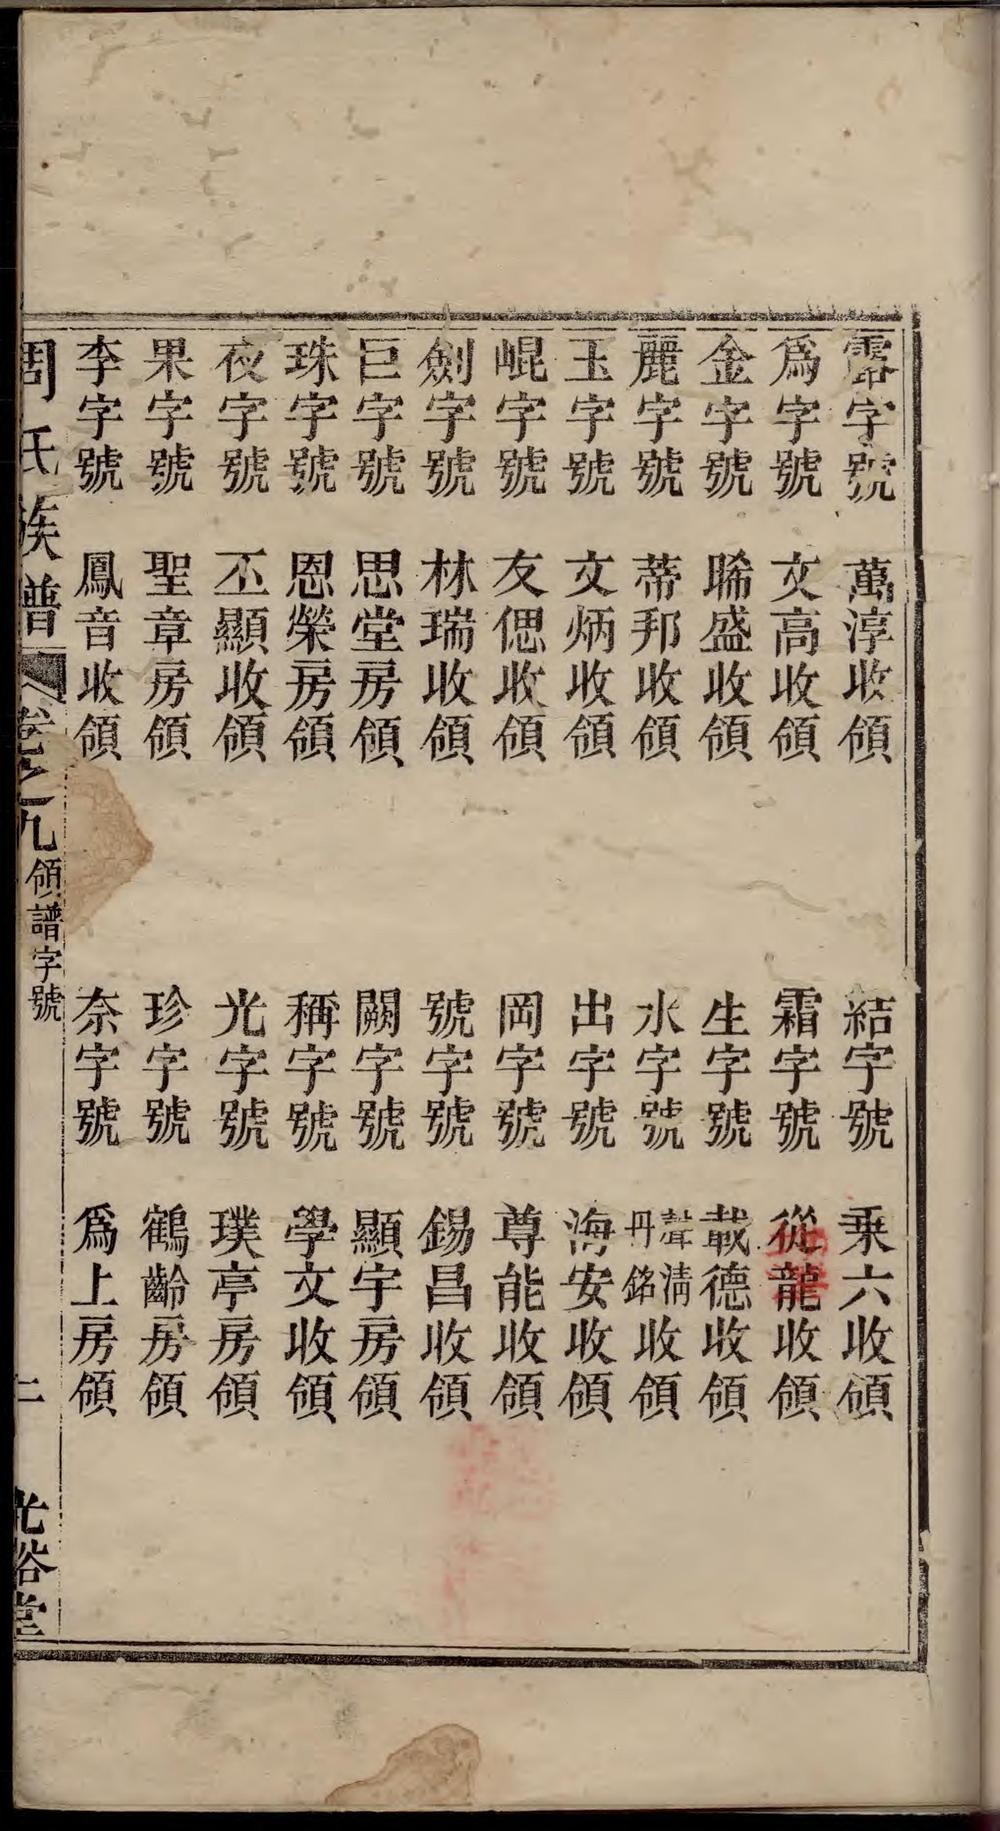 露字號 萬淳收領 結字號 乘六收領
爲字號 文高收領 霜字號 從龍收領
金字號 晞盛收領 生字號 載德收領
麗字號 蒂邦收領 水字號 聲清丹銘收領
玉字號 文炳收領 出字號 海安收領
崐字號 友偲收領 岡字號 尊能收領
劍字號 林瑞收領 號字號 錫昌收領
巨字號 思堂房領 闕字號 顯宇房領
珠字號 恩榮房領 稱字號 學文收領
夜字號 丕顯收領 光字號 璞亭房領
果字號 聖章房領 珍字號 鶴齡房領
李字號 鳳音收領 奈字號 爲上房領
周氏族譜 卷之九 領譜字號 二 光裕堂